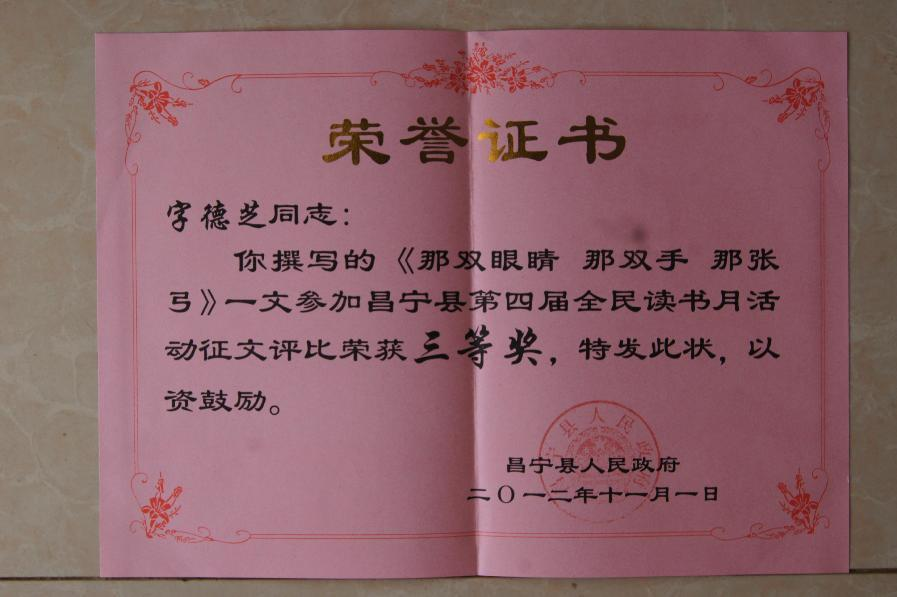 荣誉证书
字德芝同志：
你撰写的《那双眼睛 那双手 那张
弓》一文参加昌宁县第四届全民读书月活
动征文评比荣获三等奖，特发此状，以
资鼓励。
昌宁县人民政府
二〇一二年十一月一日